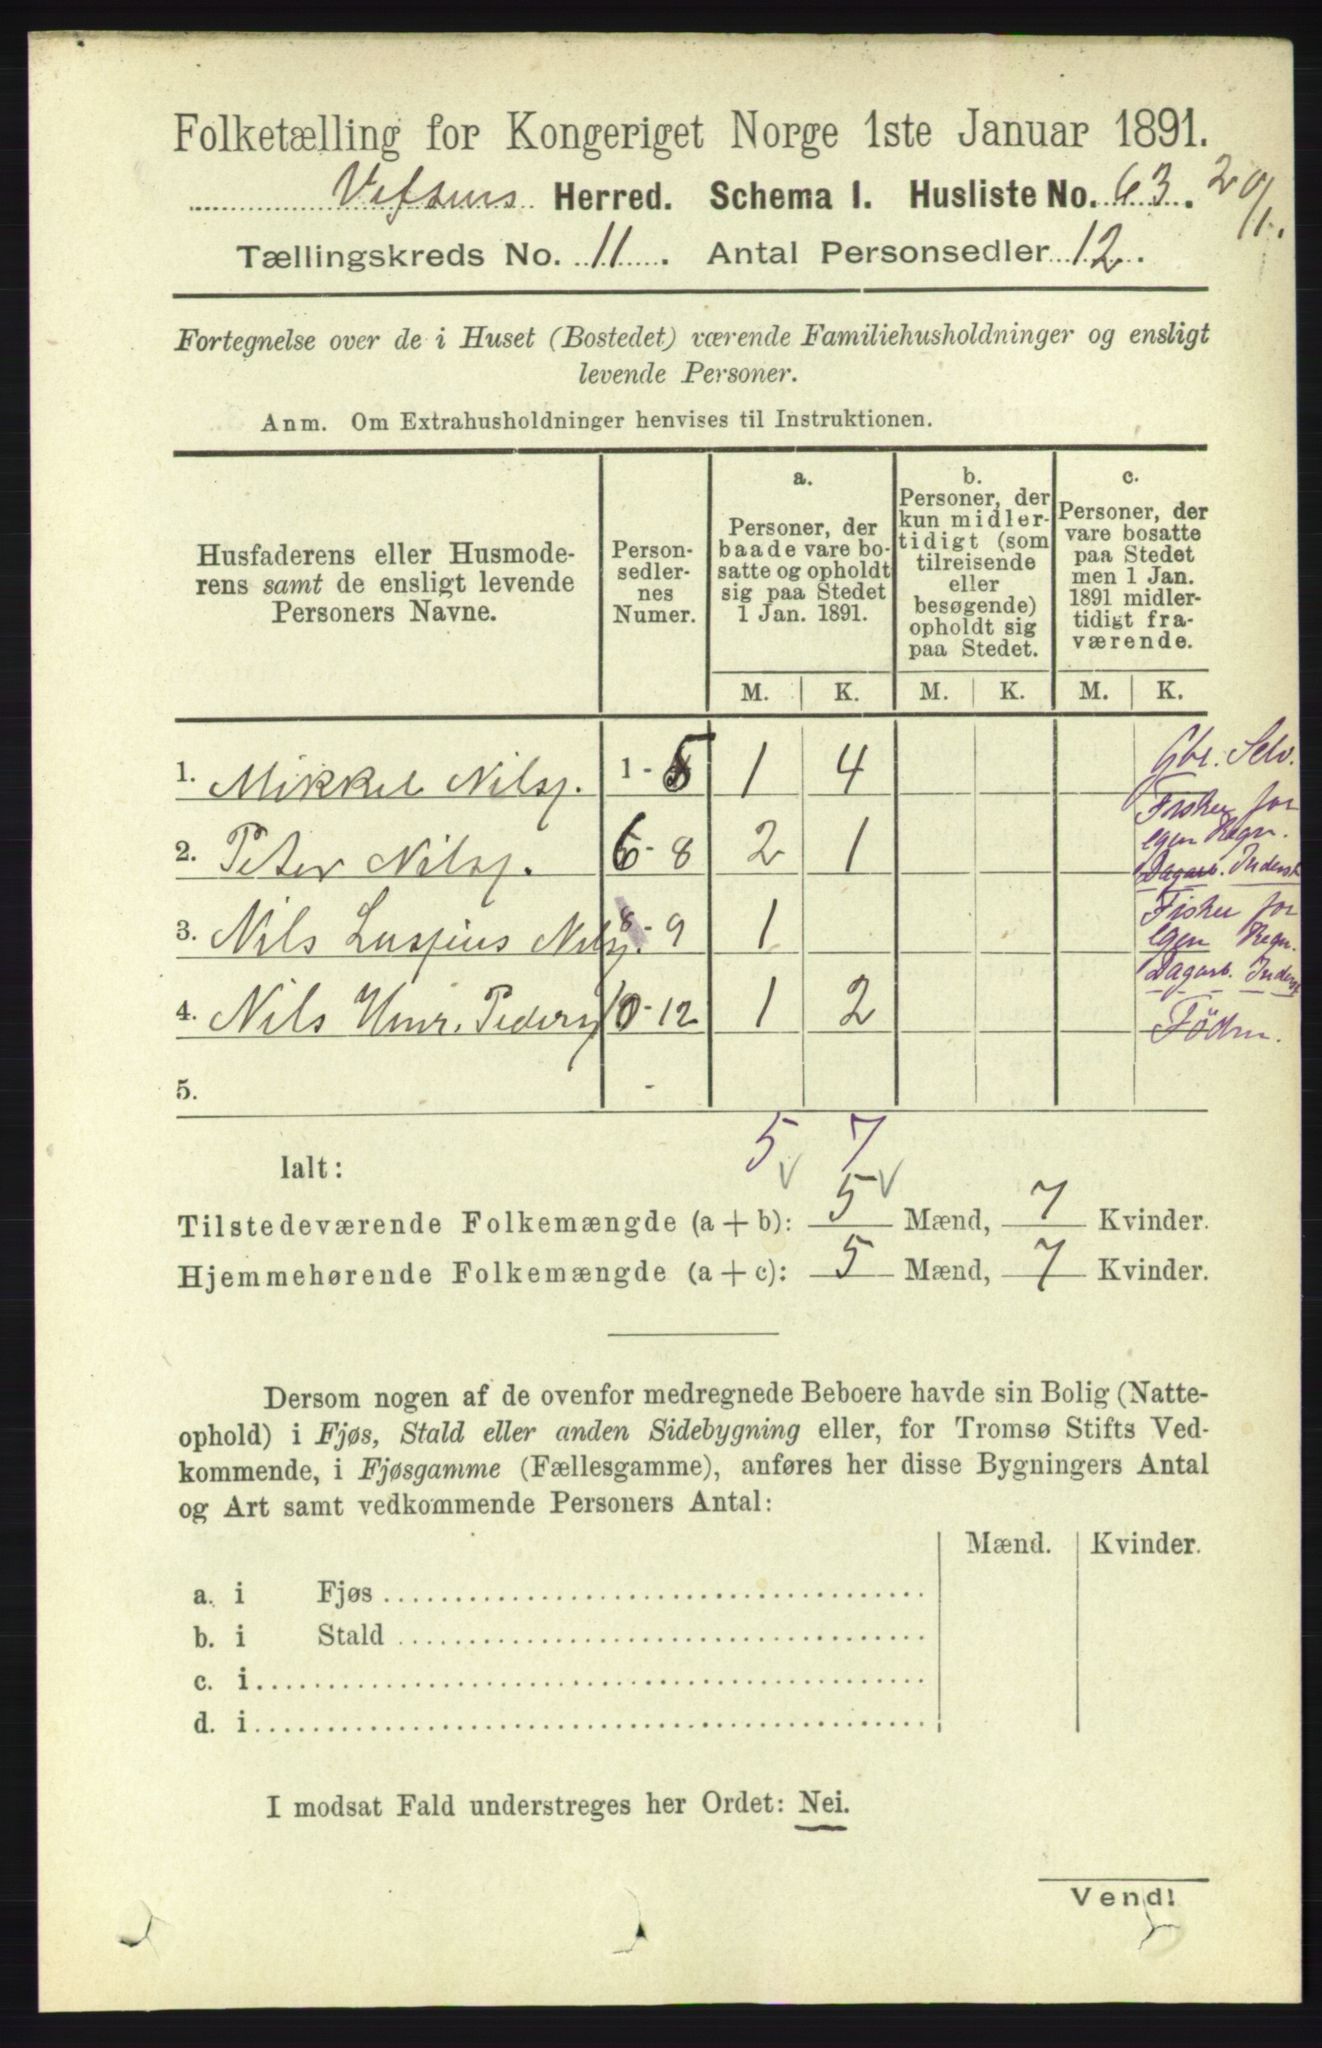 Folketælling for Kongeriget Norge 1ste Januar 1891.
Vefsens Herred. Schema I. Husliste No. 63. 20/1.
Tællingskreds No. 11. Antal Personsedler 12.
Fortegnelse over de i Huset (Bostedet) værende Familiehusholdninger og ensligt
levende Personer.
Anm. Om Extrahusholdninger henvises til Instruktionen.
Husfaderens eller Husmode-
rens samt de ensligt levende
Personers Navne.
Person-
sedler-
nes
Numer.
a.
Personer, der
baade vare bo-
satte og opholdt
sig paa Stedet
1 Jan. 1891.
b.
Personer, der
kun midler-
tidigt (som
tilreisende
eller
besøgende)
opholdt sig
paa Stedet.
c.
Personer, der
vare bosatte
paa Stedet
men 1 Jan.
1891 midler-
tidigt fra-
værende.
M. K. M. K. M. K.
1. Mikkel Nilss. 1 - 5 1 4 Gbr. Selv.
2. Peter Nilss. 6 - 8 2 1 Fisker for
egen Regn.
Dagarb. Inderst
3. Nils Nilss. 8 - 9 1 Fisker for
egen Regn.
Dagarb. Inderst
4. Nils Henr. Peders. 10 - 12 1 2 Föder.
5. -
5 7
Ialt:
Tilstedeværende Folkemængde (a + b): 5 Mænd, 7 Kvinder.
Hjemmehørende Folkemængde (a + c): 5 Mænd, 7 Kvinder.
Dersom nogen af de ovenfor medregnede Beboere havde sin Bolig (Natte-
ophold) i Fjøs, Stald eller anden Sidebygning eller, for Tromsø Stifts Ved-
kommende, i Fjøsgamme (Fællesgamme), anføres her disse Bygningers Antal
og Art samt vedkommende Personers Antal:
Mænd. Kvinder.
a. i Fjøs
b. i Stald
c. i
d. i
I modsat Fald understreges her Ordet: Nei.
Vend!